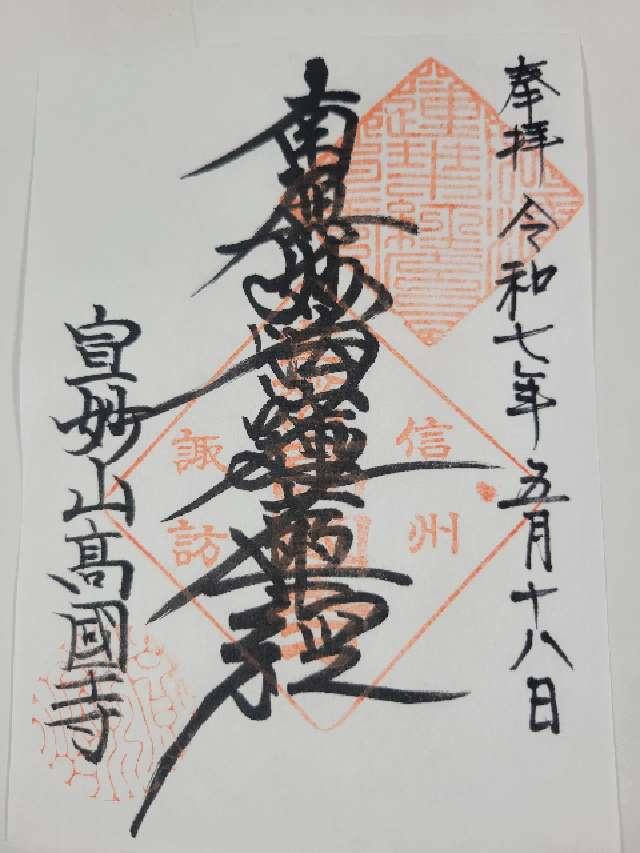 奉拝 令和七年 五月十八日
南無妙法蓮華経
信州
諏訪
宣妙山高國寺